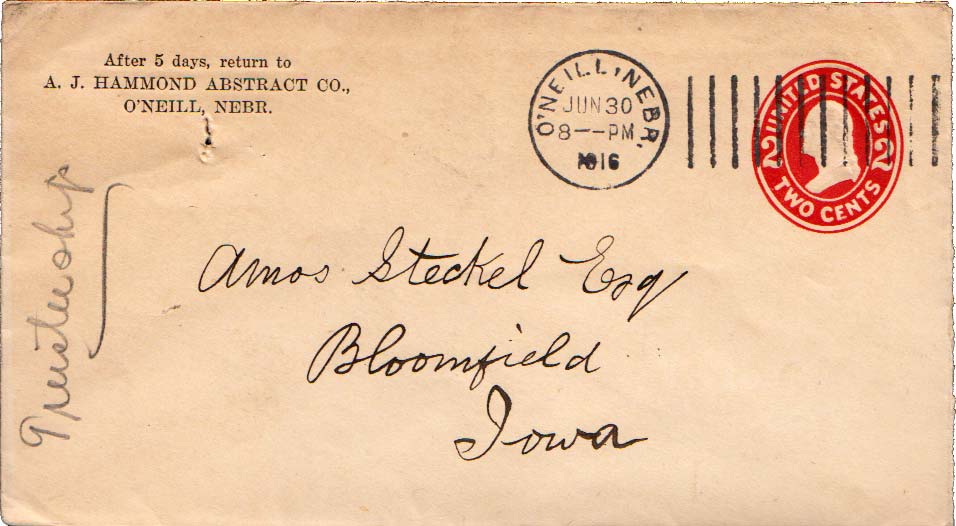 After 5 days, return to
A. J. HAMMOND ABSTRACT CO.,
O'NEILL, NEBR.
O'NEILL, NEBR.
JUN 30
8--PM
1916
UNITED STATES
2 2
TWO CENTS
Trusteeship
Amos Steckel Esq
Bloomfield
Iowa